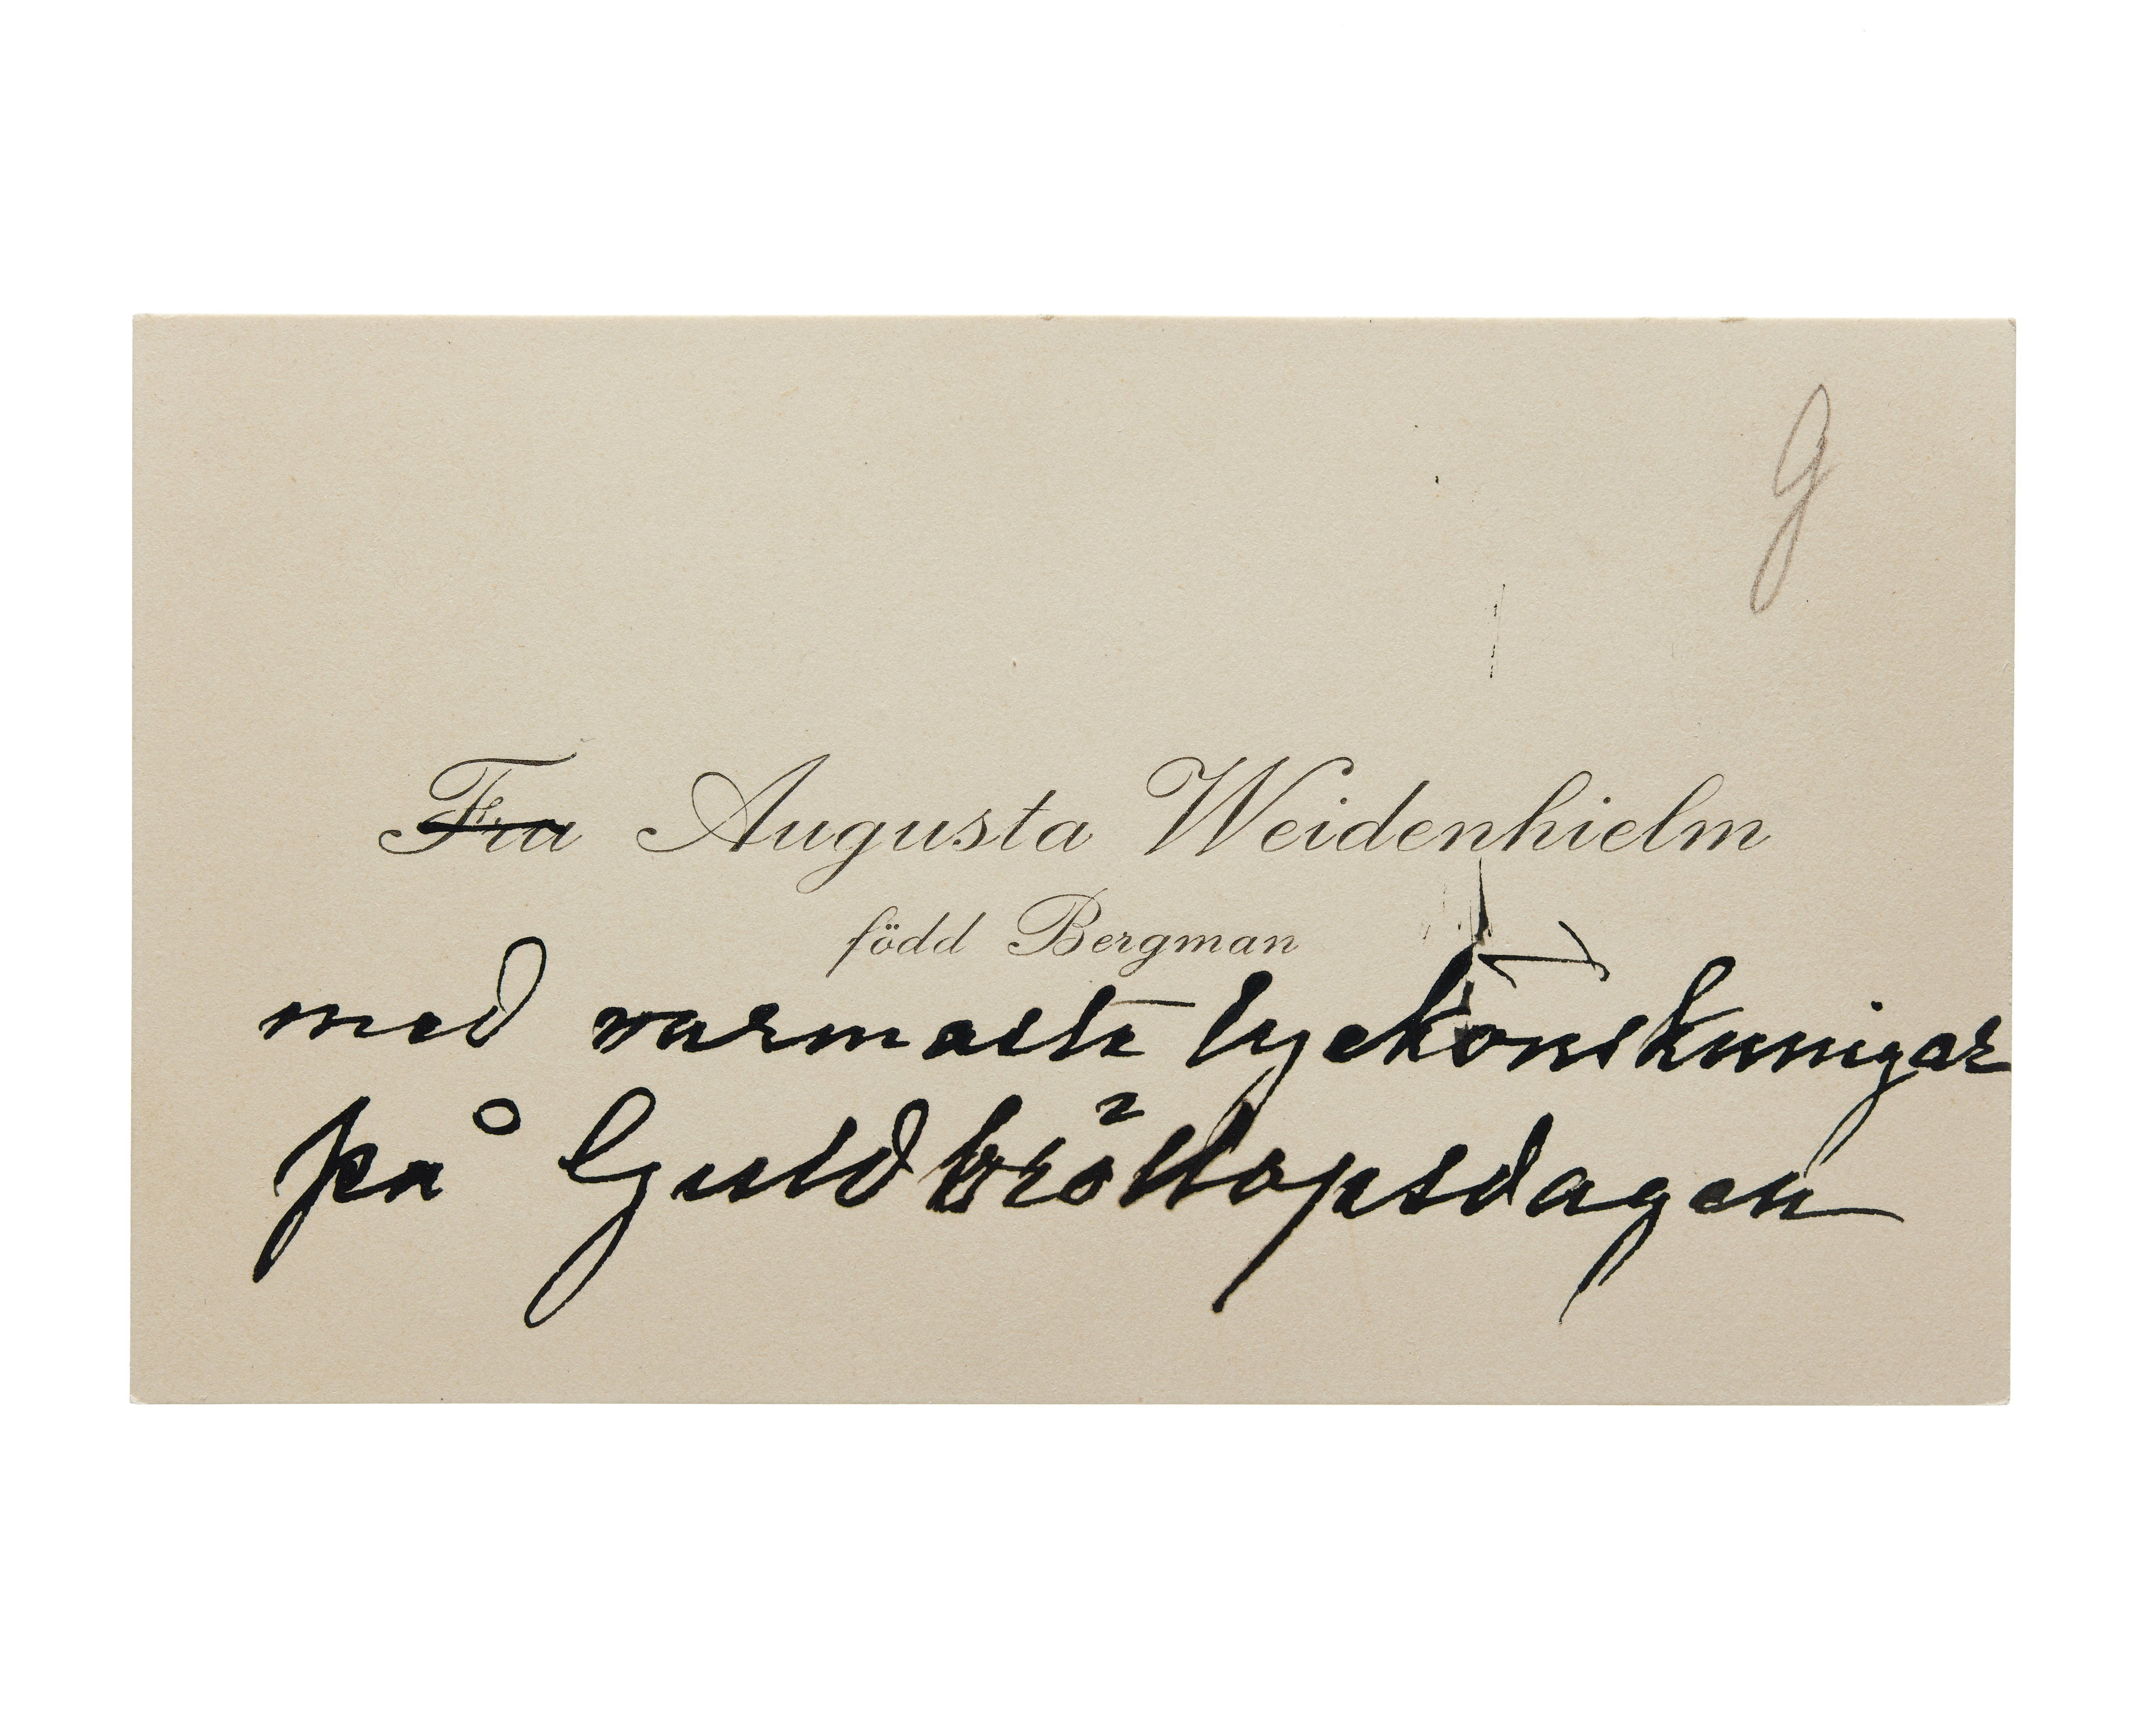 g
Fru Augusta Weidenhielm
född Bergman
med varmaste lyckönskningar
på Guldbröllopsdagen